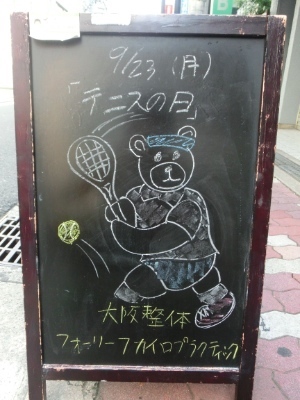 9/23(月)
「テニスの日」
大阪整体
フォーリーフカイロプラクティック